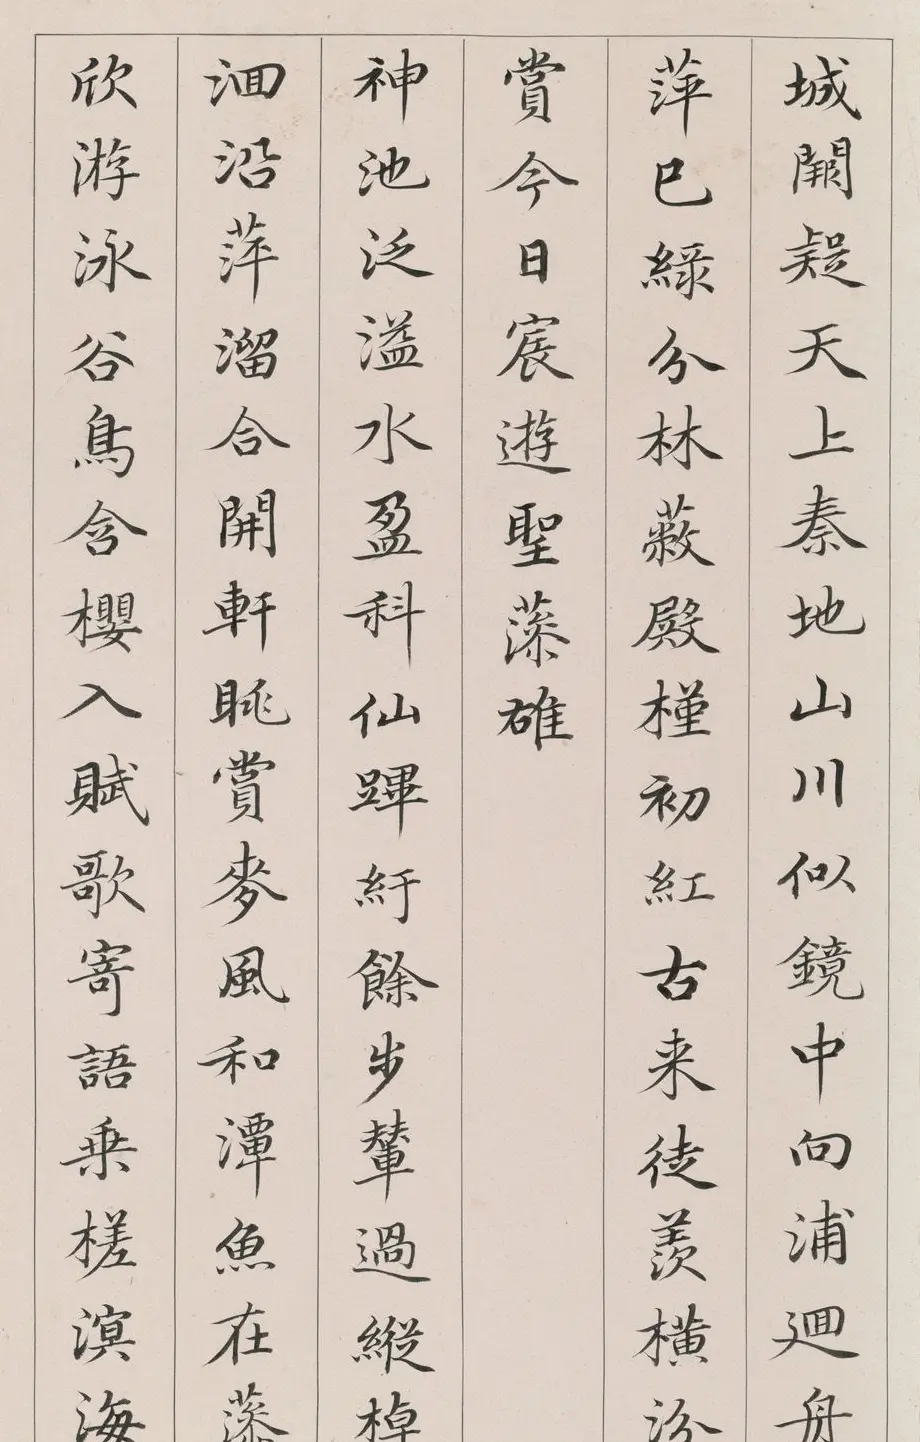 城闕疑天上秦地山川似鏡中向浦廻舟
萍已綠分林蔽殿槿初紅古来徒羡橫汾
賞今日宸遊聖藻雄
神池泛溢水盈科仙蹕紆餘步輦過縱棹
洄沿萍溜合開軒眺賞麥風和潭魚在藻
欣游泳谷鳥含櫻入賦歌寄語乗槎溟海